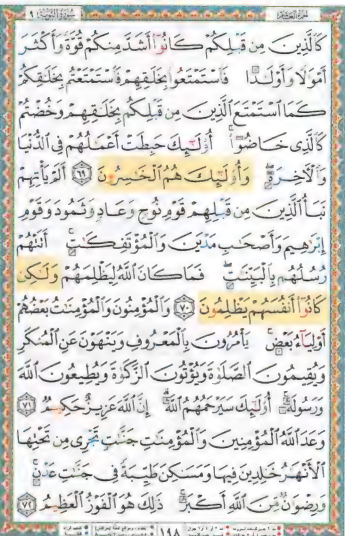 الجزء العاشر سورة التوبة ٩
كَٱلَّذِينَ مِن قَبْلِكُمْ كَانُوٓا۟ أَشَدَّ مِنكُمْ قُوَّةً وَأَكْثَرَ
أَمْوَٰلًا وَأَوْلَـٰدًا فَٱسْتَمْتَعُوا۟ بِخَلَـٰقِهِمْ فَٱسْتَمْتَعْتُم بِخَلَـٰقِكُمْ
كَمَا ٱسْتَمْتَعَ ٱلَّذِينَ مِن قَبْلِكُم بِخَلَـٰقِهِمْ وَخُضْتُمْ
كَٱلَّذِى خَاضُوٓا۟ ۚ أُو۟لَـٰٓئِكَ حَبِطَتْ أَعْمَـٰلُهُمْ فِى ٱلدُّنْيَا
وَٱلْـَٔاخِرَةِ ۖ وَأُو۟لَـٰٓئِكَ هُمُ ٱلْخَـٰسِرُونَ ٦٩ أَلَمْ يَأْتِهِمْ
نَبَأُ ٱلَّذِينَ مِن قَبْلِهِمْ قَوْمِ نُوحٍ وَعَادٍ وَثَمُودَ وَقَوْمِ
إِبْرَٰهِيمَ وَأَصْحَـٰبِ مَدْيَنَ وَٱلْمُؤْتَفِكَـٰتِ ۚ أَتَتْهُمْ
رُسُلُهُم بِٱلْبَيِّنَـٰتِ ۖ فَمَا كَانَ ٱللَّهُ لِيَظْلِمَهُمْ وَلَـٰكِن
كَانُوٓا۟ أَنفُسَهُمْ يَظْلِمُونَ ٧٠ وَٱلْمُؤْمِنُونَ وَٱلْمُؤْمِنَـٰتُ بَعْضُهُمْ
أَوْلِيَآءُ بَعْضٍ ۚ يَأْمُرُونَ بِٱلْمَعْرُوفِ وَيَنْهَوْنَ عَنِ ٱلْمُنكَرِ
وَيُقِيمُونَ ٱلصَّلَوٰةَ وَيُؤْتُونَ ٱلزَّكَوٰةَ وَيُطِيعُونَ ٱللَّهَ
وَرَسُولَهُۥٓ ۚ أُو۟لَـٰٓئِكَ سَيَرْحَمُهُمُ ٱللَّهُ ۗ إِنَّ ٱللَّهَ عَزِيزٌ حَكِيمٌ ٧١
وَعَدَ ٱللَّهُ ٱلْمُؤْمِنِينَ وَٱلْمُؤْمِنَـٰتِ جَنَّـٰتٍ تَجْرِى مِن تَحْتِهَا
ٱلْأَنْهَـٰرُ خَـٰلِدِينَ فِيهَا وَمَسَـٰكِنَ طَيِّبَةً فِى جَنَّـٰتِ عَدْنٍ ۚ
وَرِضْوَٰنٌ مِّنَ ٱللَّهِ أَكْبَرُ ۚ ذَٰلِكَ هُوَ ٱلْفَوْزُ ٱلْعَظِيمُ ٧٢
١٩٨